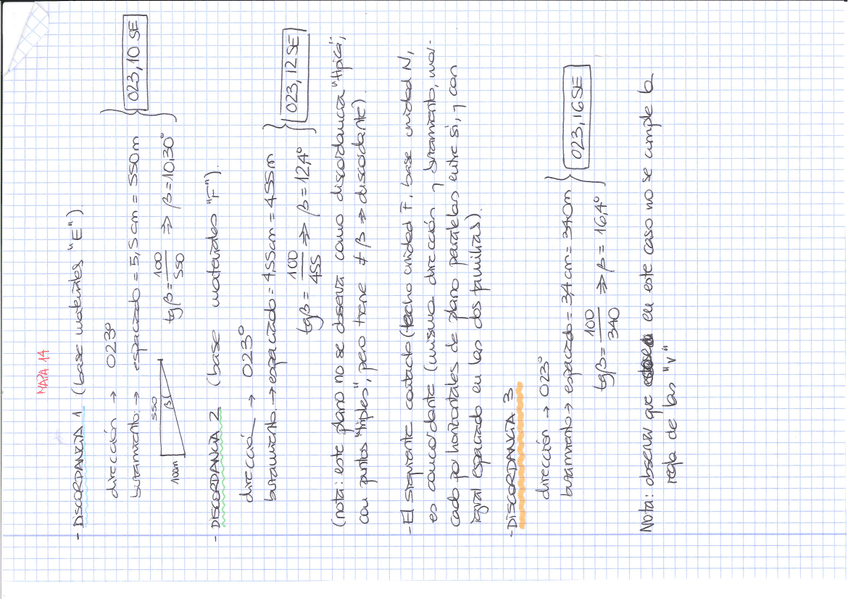 MAPA 14
- DISCORDANCIA 1 (base materiales "E")
dirección → 023º
buzamiento → espaciado = 5,5 cm = 550 m
tgβ = 100/550 ⇒ β = 10,30º } 023, 10 SE
550
β
100m
- DISCORDANCIA 2 (base materiales "F").
dirección → 023º
buzamiento → espaciado = 4,55cm = 455m
tgβ = 100/455 ⇒ β = 12,4º } 023, 12 SE
(nota: este plano no se observa como discordancia "típica",
con puntos "triples", pero tiene ≠ β ⇒ discordante).
- El siguiente contacto (techo unidad F, base unidad N,
es concordante (misma dirección y buzamiento, mar-
cado por horizontales de plano paralelas entre sí, y con
igual espaciado en las dos familias).
- DISCORDANCIA 3
dirección → 023º
buzamiento → espaciado = 3,4 cm = 340m
tgβ = 100/340 ⇒ β = 16,4º } 023, 16 SE
Nota: observar que en este caso no se cumple la
regla de las "V"